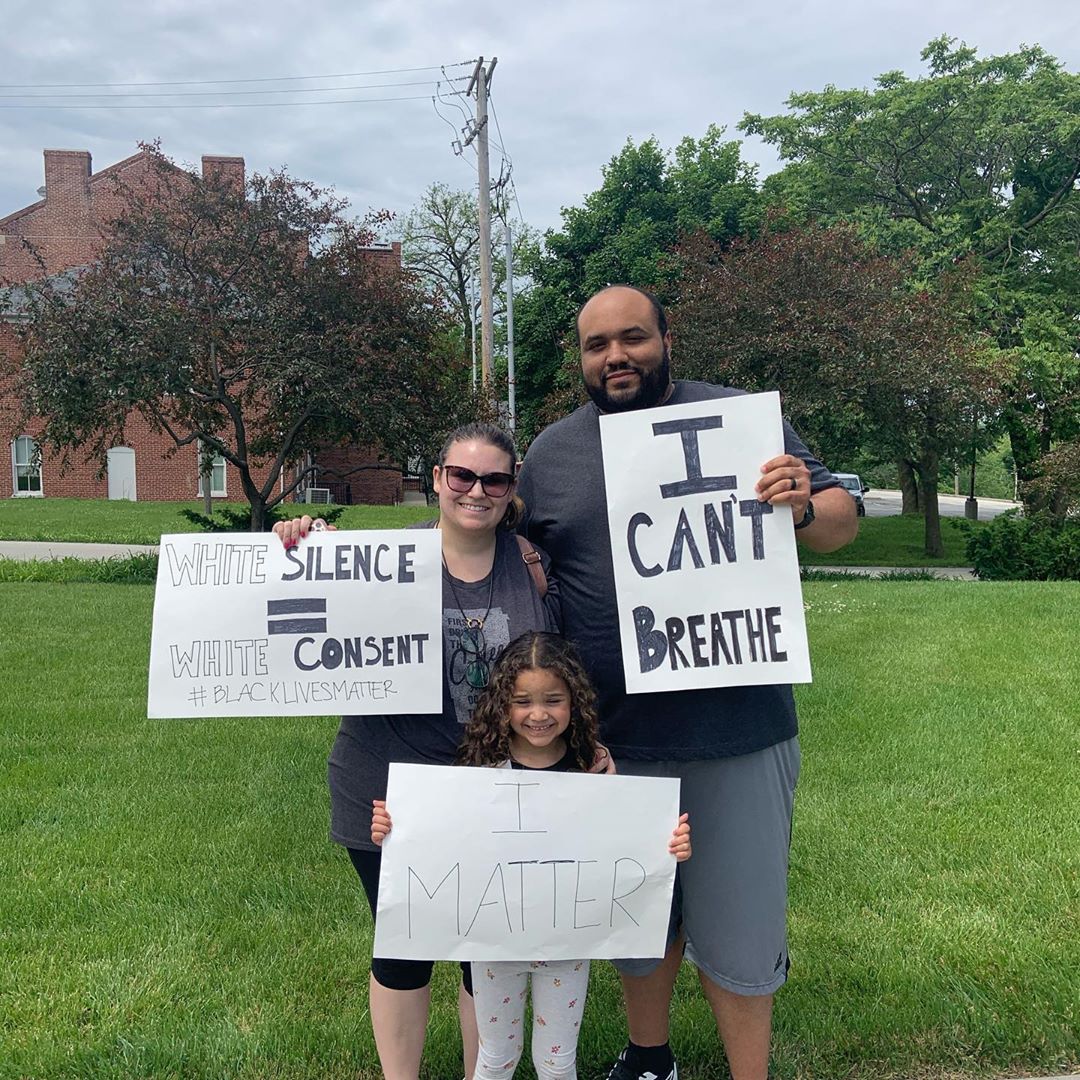 WHITE SILENCE
=
WHITE CONSENT
#BLACKLIVESMATTER
I
CAN'T
BREATHE
I
MATTER
FIRS
THE